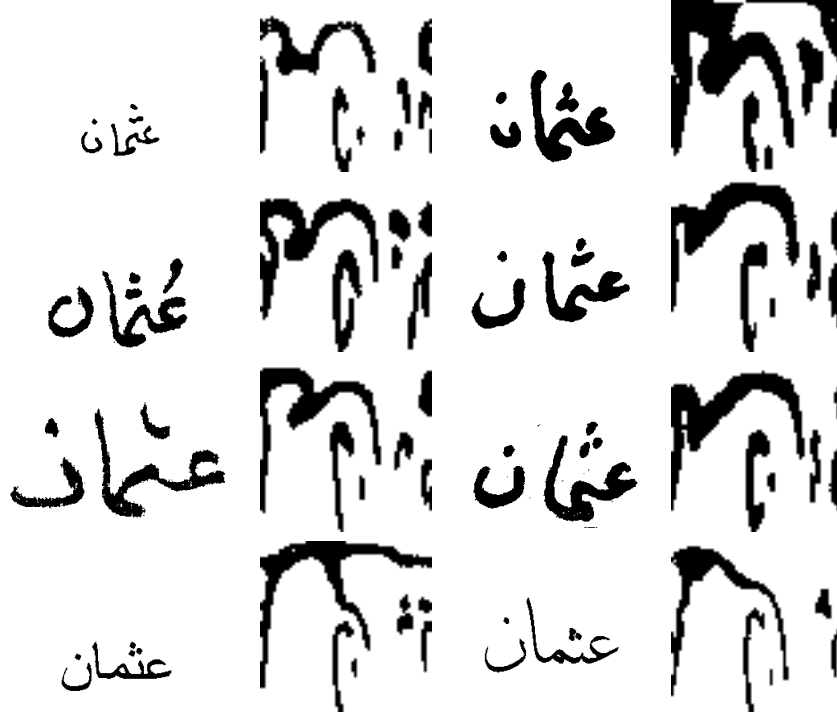 عثمان عثمان
عُثمان عثمان
عثمان عثمان
عثمان عثمان